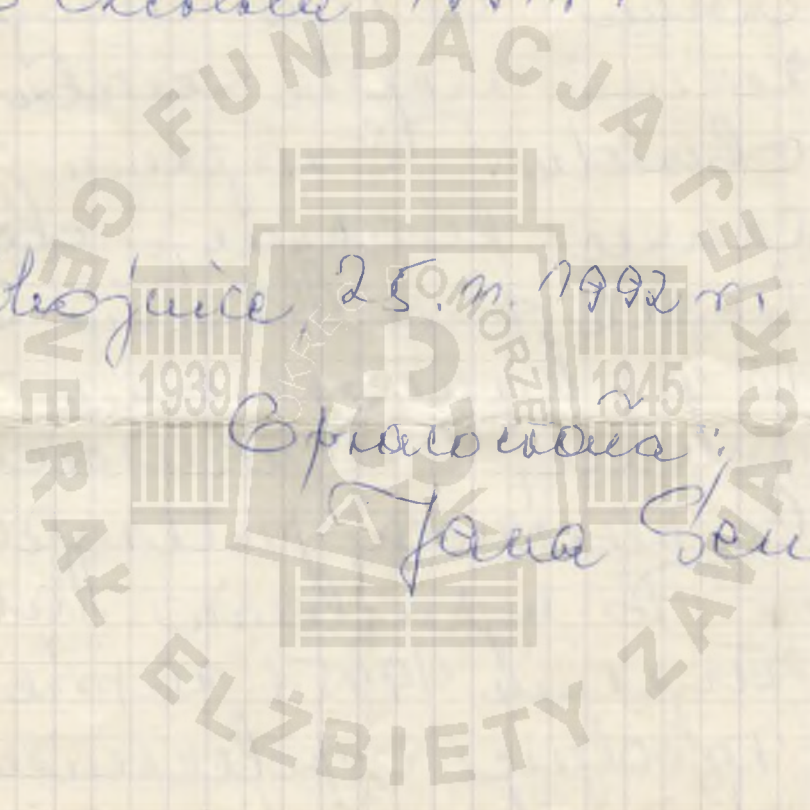 hojnice, 25.n. 1992 r.
Opracowała:
Jana Sen
FUNDACJA
GENERAŁ ELŻBIETY ZAWACKIEJ
OKRĘG POMORZE
1939
1945
AK